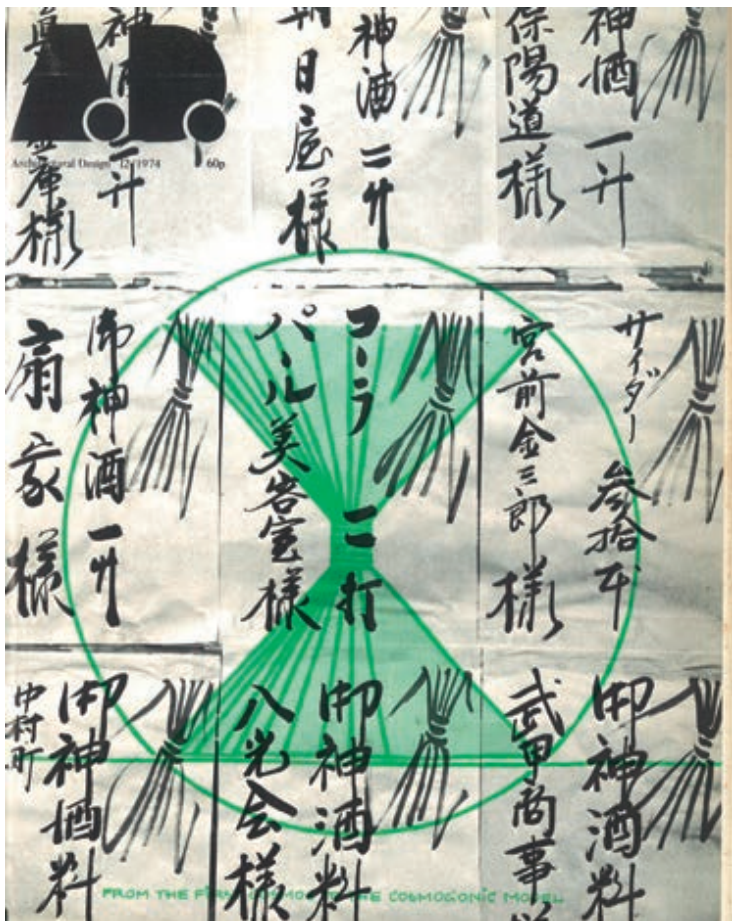 AD
Architectural Design 12/1974 60p
神酒 一升
保陽道様
神酒 二升
日屋様
神酒 一升
庫様
サイダー 参拾本
宮前金三郎様
コーラ 二打
パール美容室様
御神酒 一升
扇家様
御神酒料
武甲商事
御神酒料
八光会様
御神酒料
中村町
FROM THE FIRST COSMOS THE COSMOGONIC MODEL